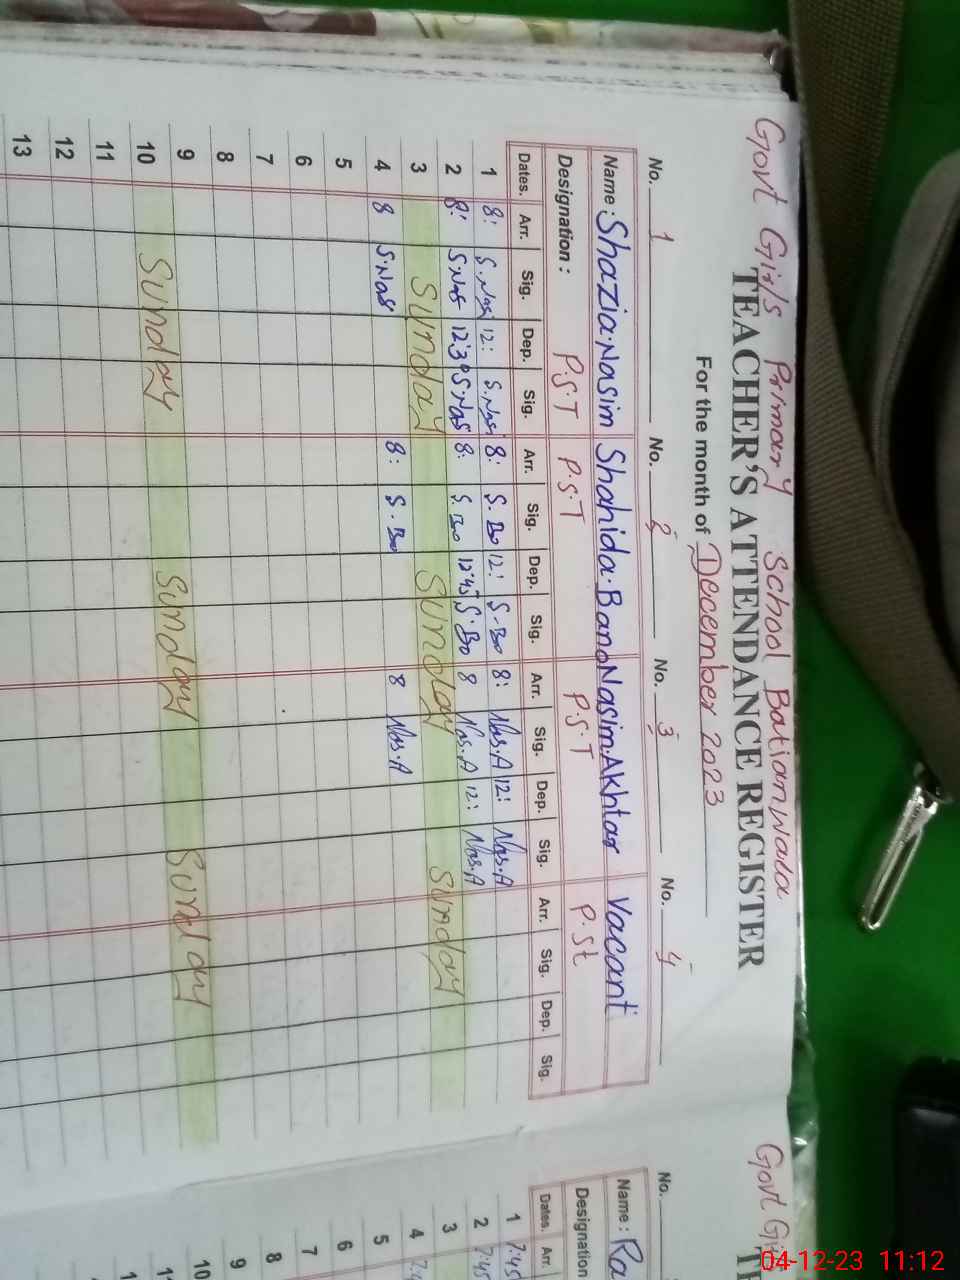 Govt Girls Primary School Batianwala
TEACHER'S ATTENDANCE REGISTER
For the month of December 2023
No. 1 No. 2 No. 3 No. 4
Name: Shazia.Nasim Shahida.Bano Nasim.Akhtar Vacant
Designation: P.S.T P.S.T P.S.T P.St
Dates. Arr. Sig. Dep. Sig. Arr. Sig. Dep. Sig. Arr. Sig. Dep. Sig. Arr. Sig. Dep. Sig.
1 8: S.Nas 12: S.Nas 8: S.Bo 12: S.Bo 8: Nas.A 12: Nas.A
2 8: S.Nas 12:30 S.Nas 8: S.Bo 12:45 S.Bo 8 Nas.A 12: Nas.A
3 Sunday Sunday Sunday
4 8 S.Nas 8: S.Bo 8 Nas.A
5
6
7
8
9
10 Sunday Sunday Sunday
11
12
13
Govt Gi
TE
No.
Name: Ra
Designation
Dates. Arr.
1 7:45
2 7:45
3
4 7:4
5
6
7
8
9
10
04-12-23 11:12